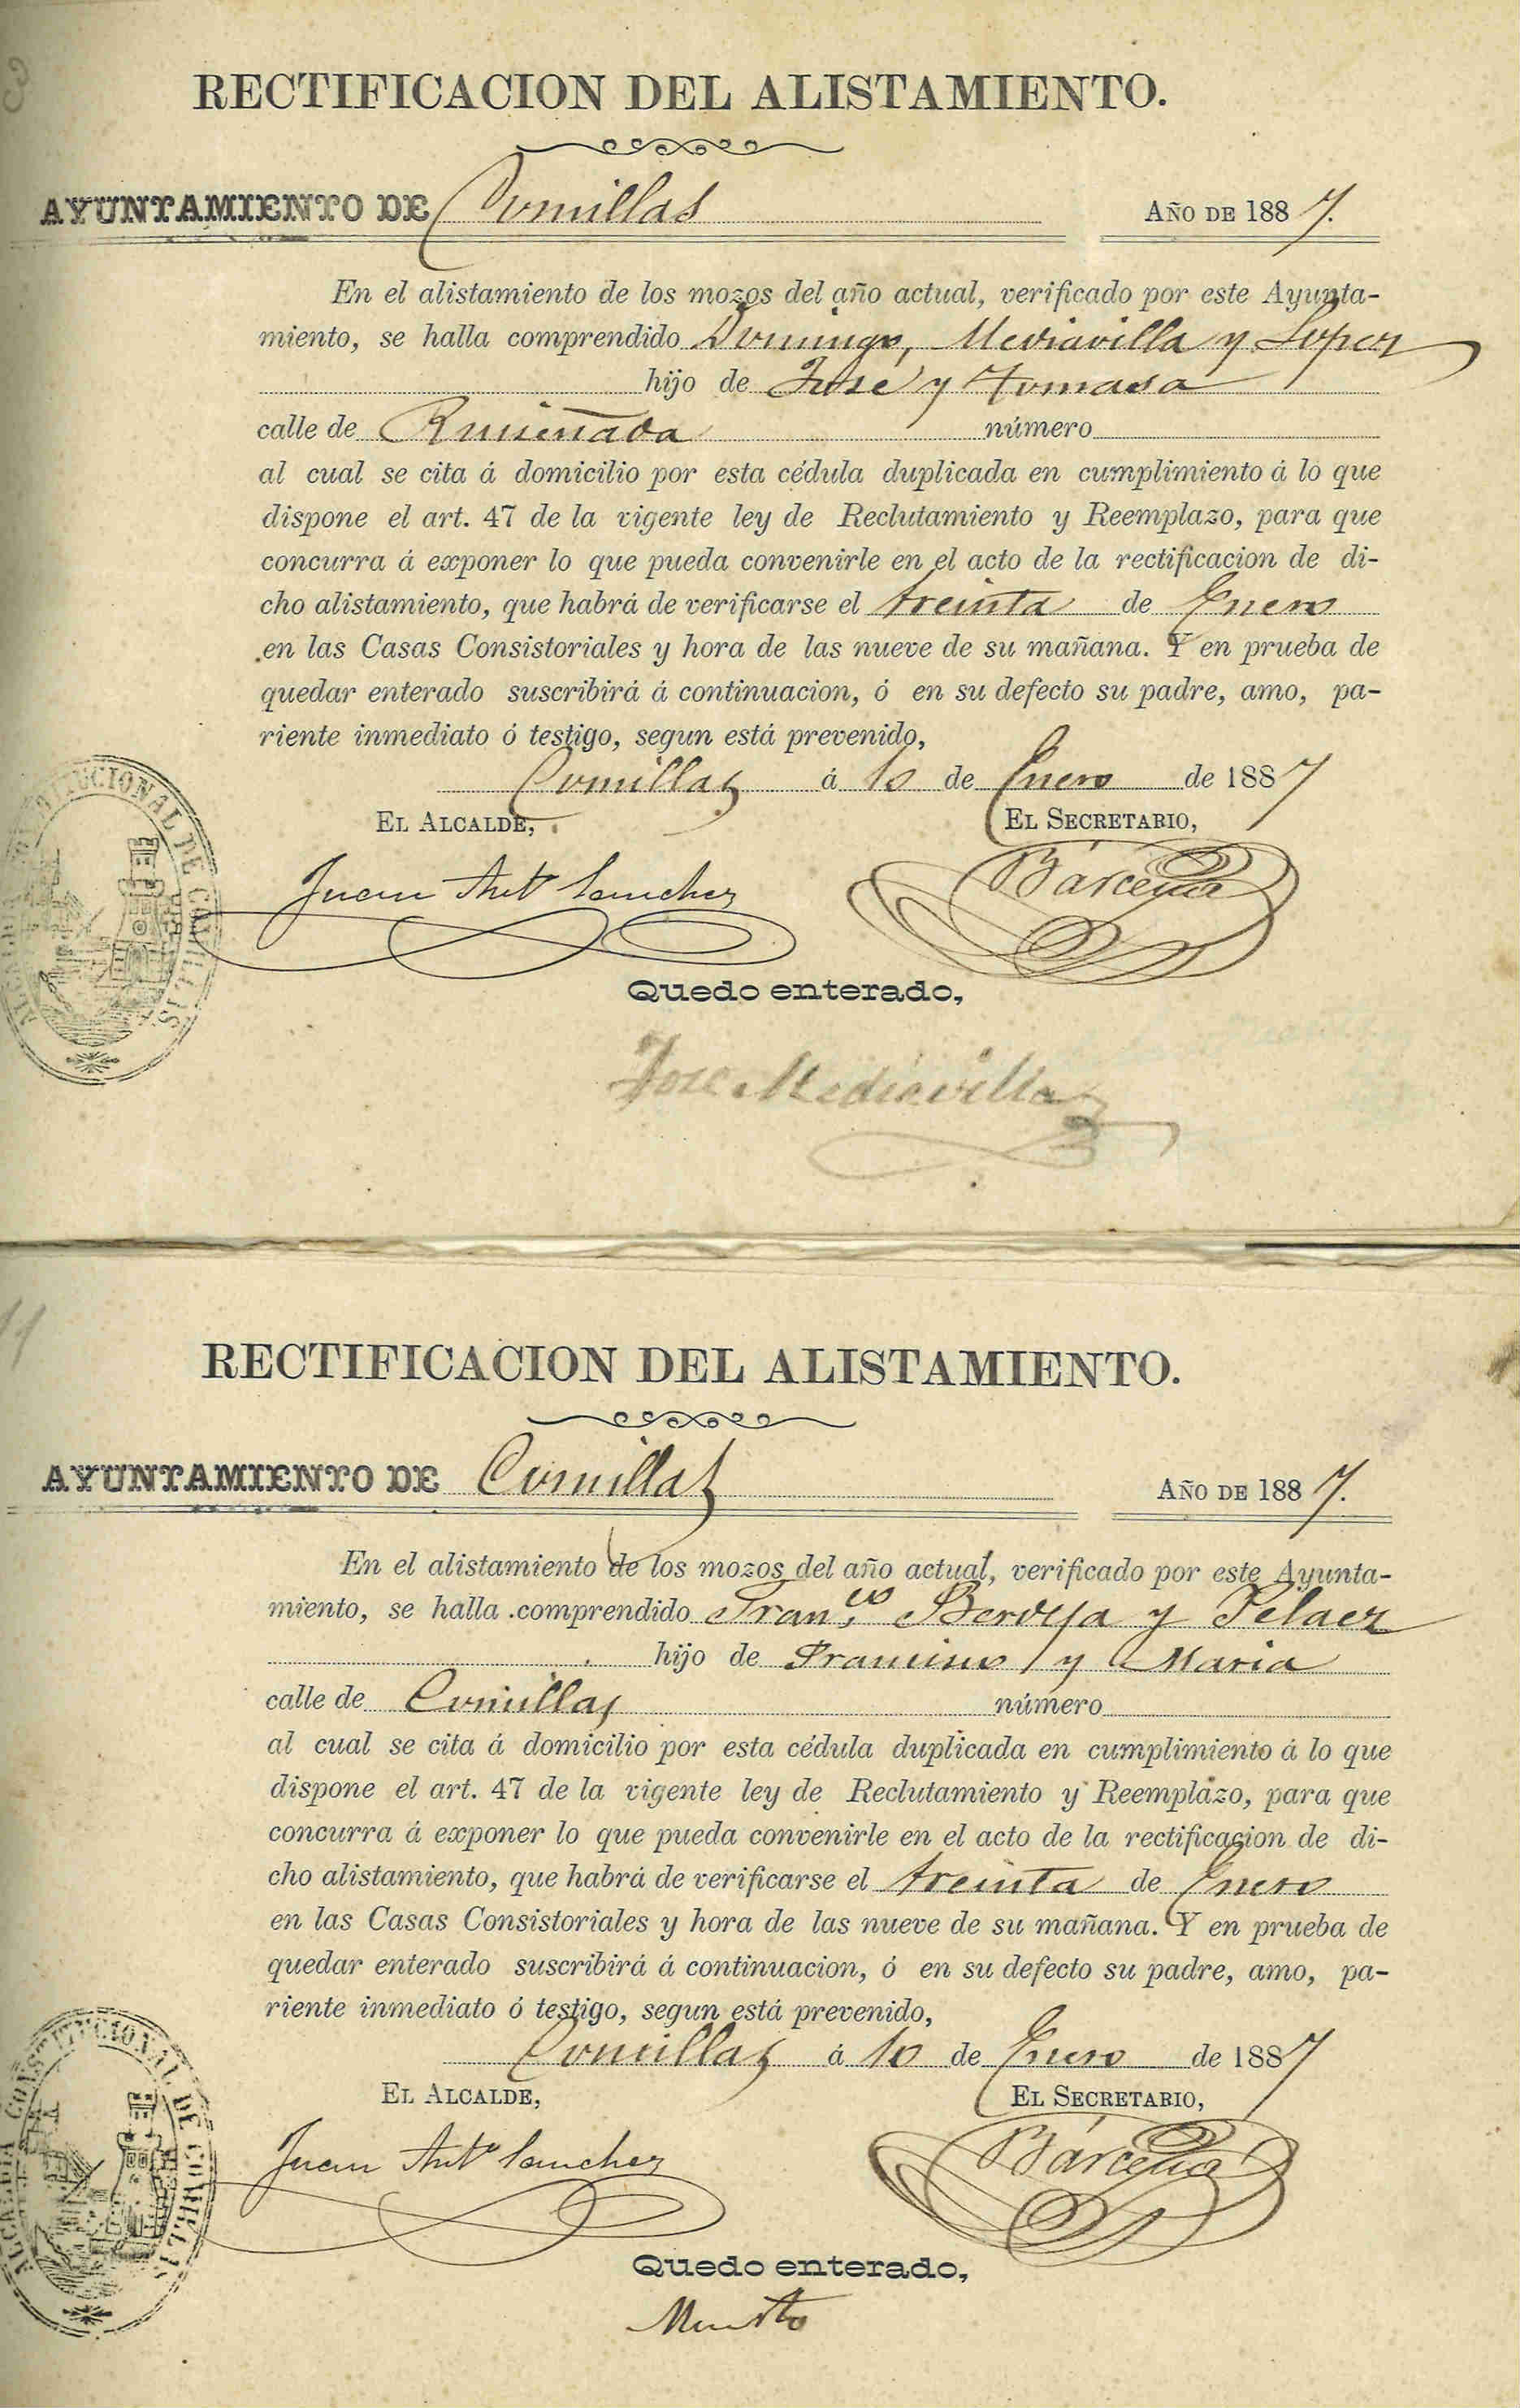 RECTIFICACION DEL ALISTAMIENTO.
AYUNTAMIENTO DE Comillas AÑO DE 1887.
En el alistamiento de los mozos del año actual, verificado por este Ayunta-
miento, se halla comprendido Domingo, Mediavilla y Lopez
hijo de José y Tomasa
calle de Ruiseñada número
al cual se cita á domicilio por esta cédula duplicada en cumplimiento á lo que
dispone el art. 47 de la vigente ley de Reclutamiento y Reemplazo, para que
concurra á exponer lo que pueda convenirle en el acto de la rectificacion de di-
cho alistamiento, que habrá de verificarse el treinta de Enero
en las Casas Consistoriales y hora de las nueve de su mañana. Y en prueba de
quedar enterado suscribirá á continuacion, ó en su defecto su padre, amo, pa-
riente inmediato ó testigo, segun está prevenido,
Comillas á 10 de Enero de 1887
EL ALCALDE, EL SECRETARIO,
Juan Antº Sanchez Bárcena
Quedo enterado,
Jose Mediavilla
11
RECTIFICACION DEL ALISTAMIENTO.
AYUNTAMIENTO DE Comillas AÑO DE 1887.
En el alistamiento de los mozos del año actual, verificado por este Ayunta-
miento, se halla comprendido Fran.co Berdeja y Pelaez
hijo de Francisco y Maria
calle de Comillas número
al cual se cita á domicilio por esta cédula duplicada en cumplimiento á lo que
dispone el art. 47 de la vigente ley de Reclutamiento y Reemplazo, para que
concurra á exponer lo que pueda convenirle en el acto de la rectificacion de di-
cho alistamiento, que habrá de verificarse el treinta de Enero
en las Casas Consistoriales y hora de las nueve de su mañana. Y en prueba de
quedar enterado suscribirá á continuacion, ó en su defecto su padre, amo, pa-
riente inmediato ó testigo, segun está prevenido,
Comillas á 10 de Enero de 1887
ALCALDIA CONSTITUCIONAL DE COMILLAS
EL ALCALDE, EL SECRETARIO,
Juan Antº Sanchez Bárcena
Quedo enterado,